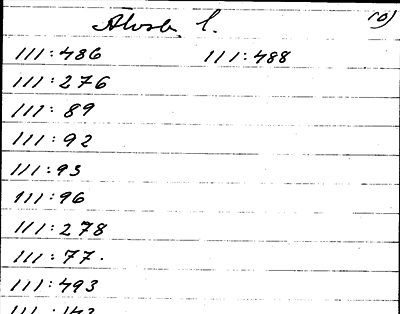 10)
111:486 111:488
111:276
111:89
111:92
111:93
111:96
111:278
111:77.
111:493
111:143